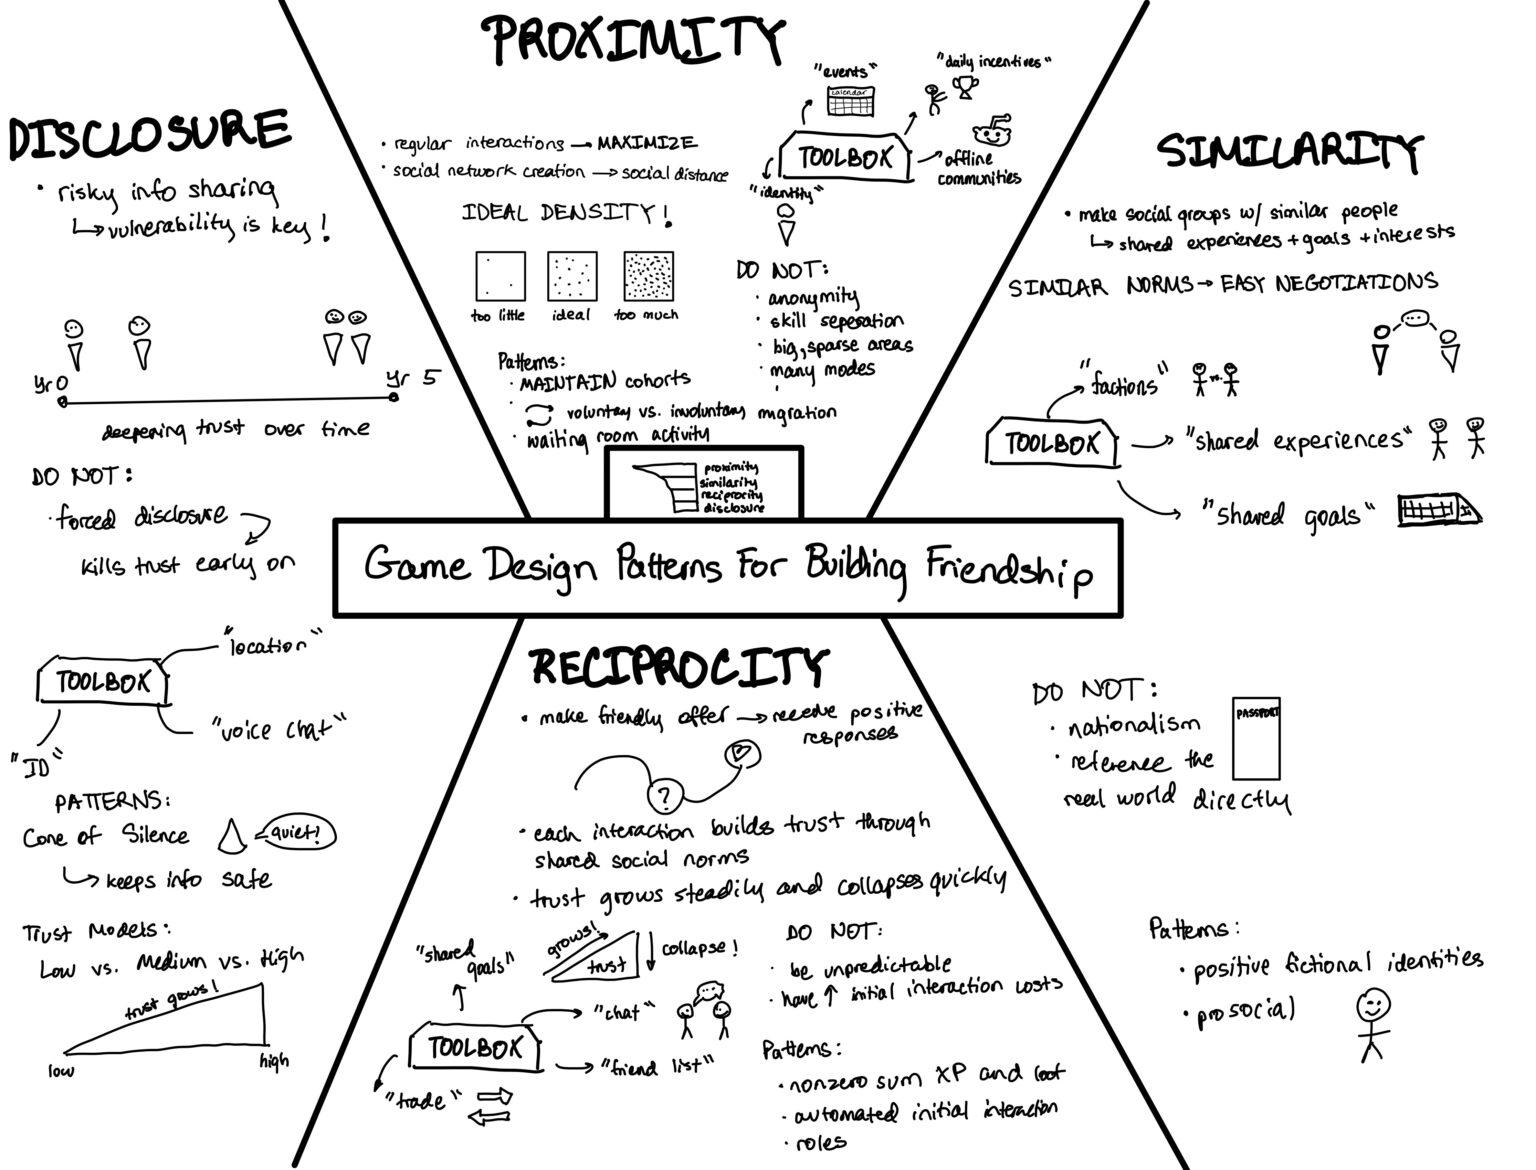 PROXIMITY
• regular interactions → MAXIMIZE
• social network creation → social distance
IDEAL DENSITY!
too little
ideal
too much
Patterns:
• MAINTAIN cohorts
• voluntary vs. involuntary migration
• waiting room activity
"events"
calendar
"daily incentives"
TOOLBOX
→ offline
communities
"identity"
DO NOT:
• anonymity
• skill seperation
• big, sparse areas
• many modes
DISCLOSURE
• risky info sharing
↳ vulnerability is key!
yr 0
yr 5
deepening trust over time
DO NOT:
• forced disclosure
kills trust early on
"location"
TOOLBOX
"voice chat"
"ID"
PATTERNS:
Cone of Silence
quiet!
↳ keeps info safe
Trust Models:
Low vs. Medium vs. High
trust grows!
low
high
SIMILARITY
• make social groups w/ similar people
↳ shared experiences + goals + interests
SIMILAR NORMS → EASY NEGOTIATIONS
"factions"
vs.
TOOLBOX
→ "shared experiences"
"shared goals"
DO NOT:
• nationalism
• reference the
real world directly
PASSPORT
Patterns:
• positive fictional identities
• prosocial
proximity
similarity
reciprocity
disclosure
Game Design Patterns For Building Friendship
RECIPROCITY
• make friendly offer → receive positive
responses
?
• each interaction builds trust through
shared social norms
• trust grows steadily and collapses quickly
grows!
trust
collapse!
"shared
goals"
TOOLBOX
"chat"
→ "friend list"
"trade"
DO NOT:
• be unpredictable
• have ↑ initial interaction costs
Patterns:
• nonzero sum XP and loot
• automated initial interaction
• roles